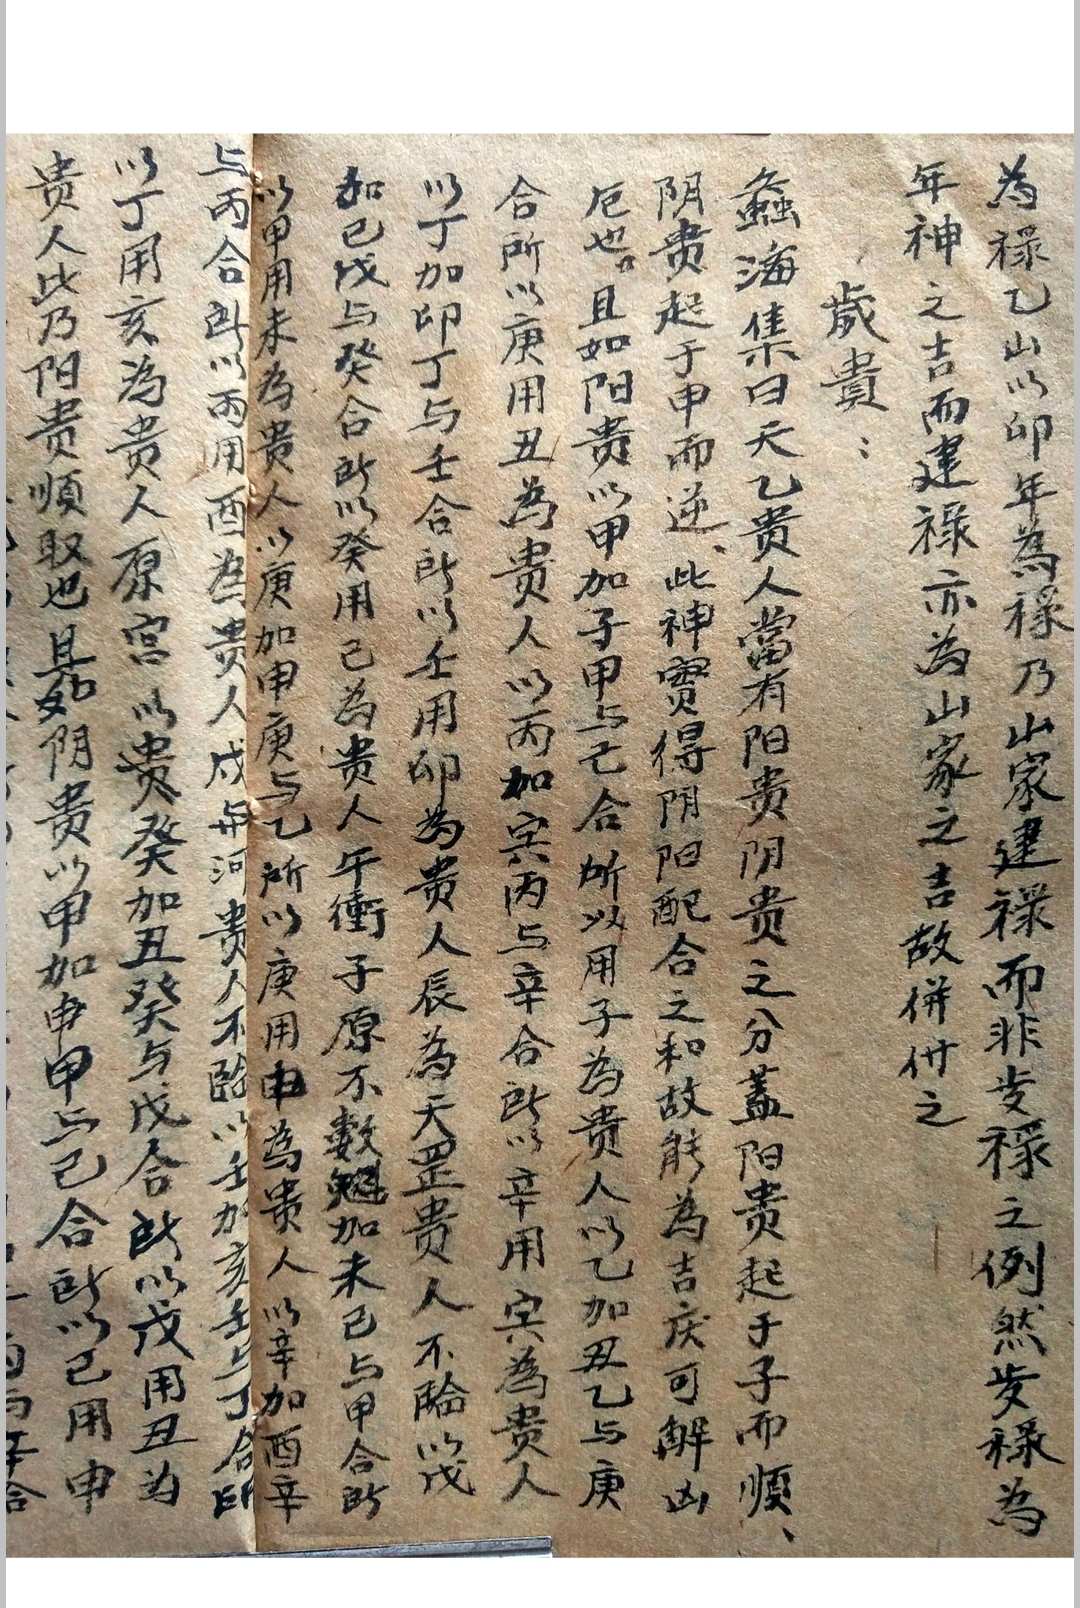 為禄乙山以卯年為禄乃山家建禄而非歩禄之例然歩禄為
年神之吉而建禄亦為山家之吉故併附之
歲貴：
蠡海集曰天乙贵人當有阳贵阴贵之分蓋阳贵起于子而順、
阴贵起于申而逆、此神實得阴阳配合之和故能為吉庆可解凶
厄也。且如阳贵以甲加子甲与己合所以用子為贵人以乙加丑乙与庚
合所以庚用丑為贵人以丙加寅丙与辛合所以辛用寅為贵人
以丁加卯丁与壬合所以壬用卯為贵人辰為天罡贵人不臨以戊
加己戊与癸合所以癸用己為贵人午衝子原不數 加未己与甲合所
以甲用未為贵人以庚加申庚与乙所以庚用申為贵人以辛加酉辛
与丙合所以丙用酉為贵人戌与河贵人不臨以壬加亥壬与丁合所
以丁用亥為贵人原宫以贵癸加丑癸与戊合所以戊用丑為
贵人此乃阳贵順取也且如阴贵以甲加申甲与己合所以己用申